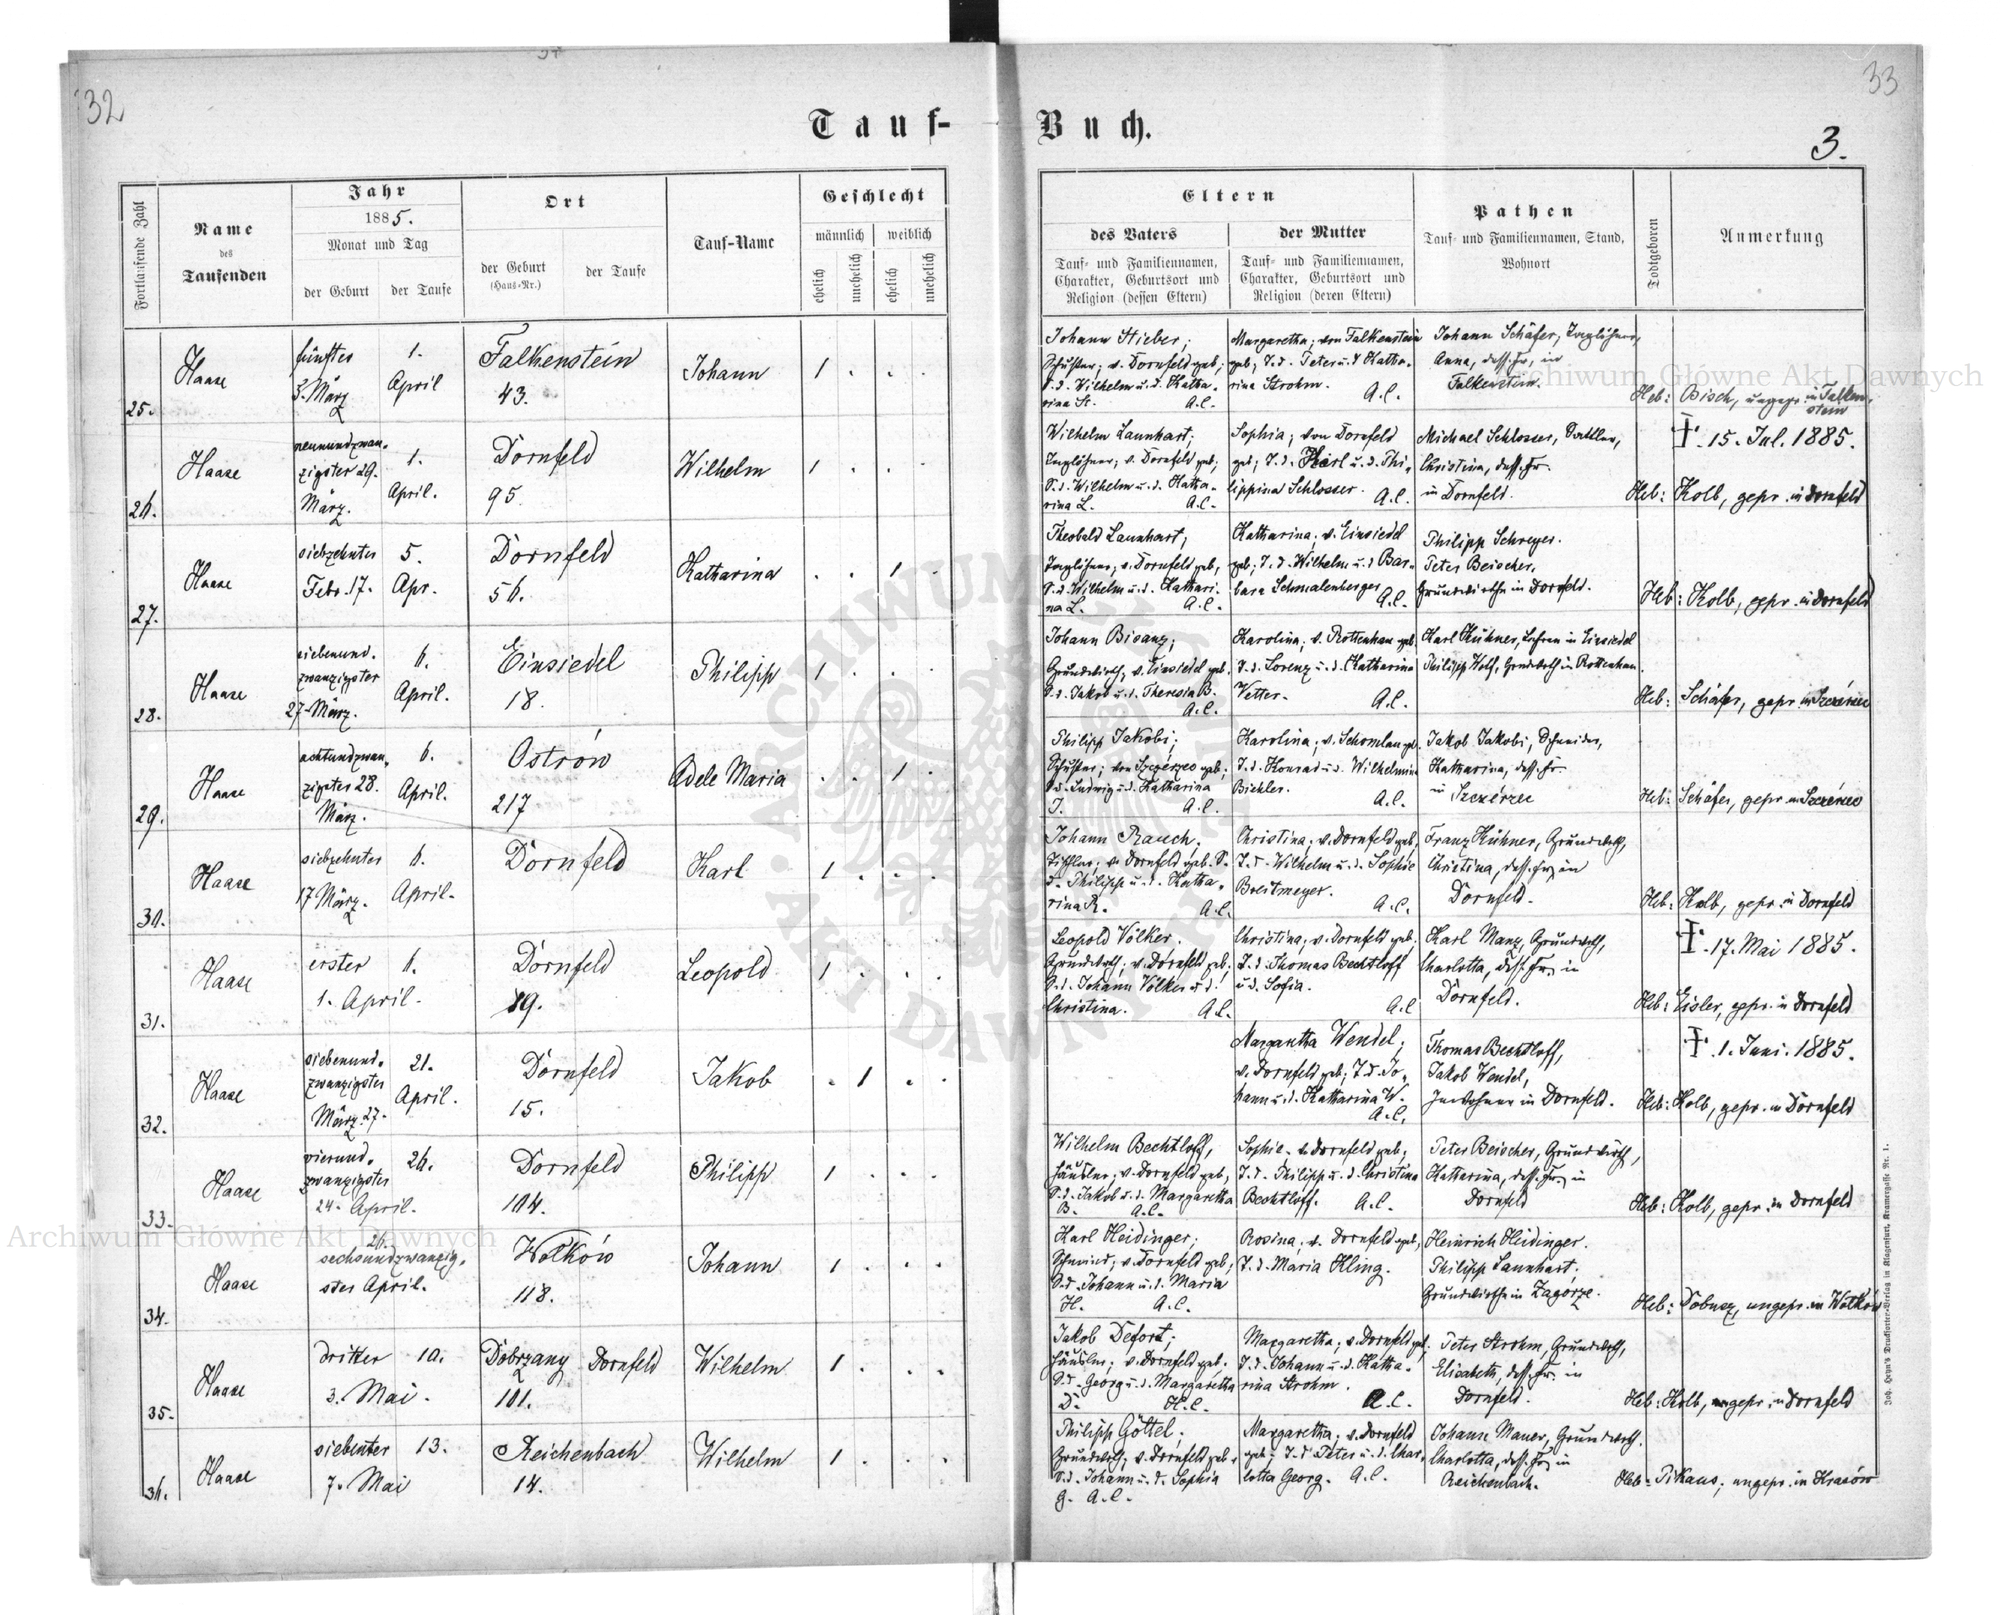 32
33
Tauf-
Buch.
3.
Fortlaufende Zahl
Name
des
Taufenden
Jahr
1885.
Monat und Tag
der Geburt
der Taufe
Ort
der Geburt
(Haus-Nr.)
der Taufe
Tauf-Name
Geschlecht
männlich
weiblich
ehelich
unehelich
ehelich
unehelich
Eltern
des Vaters
Tauf- und Familiennamen,
Charakter, Geburtsort und
Religion (dessen Eltern)
der Mutter
Tauf- und Familiennamen,
Charakter, Geburtsort und
Religion (deren Eltern)
Pathen
Tauf- und Familiennamen, Stand,
Wohnort
Todtgeboren
Anmerkung
25.
Haase
fünfter
5. März
1.
April
Falkenstein
43.
Johann
1 . . .
Johann Stieber;
Schuster; v. Dornfeld geb;
S. d. Wilhelm u. d. Katha-
rina St. A.C.
Margaretha; von Falkenstein
geb; T. d. Peter u. d. Katha-
rina Strohm. A.C.
Johann Schäfer, Inglöhner,
Anna, dess. Fr, in
Falkenstein.
Heb: Bisch, ungepr. in Falken-
stein
26.
Haase
neunundzwan-
zigster 29.
März.
1.
April.
Dornfeld
95.
Wilhelm
1 . . .
Wilhelm Launhart;
Inglöhner; v. Dornfeld geb;
S. d. Wilhelm u. d. Katha-
rina L. A.C.
Sophia; von Dornfeld
geb; T. d. Karl u. d. Phi-
lippina Schlosser. A.C.
Michael Schlosser, Sattler,
Christina, dess. Fr.
in Dornfeld.
†. 15. Jul. 1885.
Heb: Kolb, gepr. in Dornfeld
27.
Haase
siebzehnter
Febr. 17.
5.
Apr.
Dornfeld
56.
Katharina
. . 1 .
Theobald Launhart;
Inglöhner; v. Dornfeld geb,
S. d. Wilhelm u. d. Kathari-
na L. A.C.
Katharina; v. Einsiedel
geb; T. d. Wilhelm u. d. Bar-
bara Schmalenberger A.C.
Philipp Schreyer.
Peter Beischer,
Grundwirthe in Dornfeld.
Heb: Kolb, gepr. in Dornfeld
28.
Haase
siebenund-
zwanzigster
27. März.
6.
April.
Einsiedel
18.
Philipp
1 . . .
Johann Bisanz;
Grundwirth, v. Einsiedel geb.
S. d. Jakob u. d. Theresia B.
A.C.
Karolina; v. Rottenhan geb
T. d. Lorenz u. d. Katharina
Vetter. A.C.
Karl Kühner, in Einsiedel
Philipp Wolf, Grundwirth in Rottenhan.
Heb: Schäfer, gepr. in Szczérzec
29.
Haase
achtundzwan-
zigster 28.
März.
6.
April.
Ostrów
217
Adele Maria
. . 1 .
Philipp Jakobi;
Schuster; von Szczérzec geb;
S. d. Ludwig u. d. Katharina
J. A.C.
Karolina; v. Schomlau geb.
T. d. Konrad u. d. Wilhelmina
Bichler. A.C.
Jakob Jakobi, Schneider,
Katharina, dess. Fr.
in Szczérzec
Heb: Schäfer, gepr. in Szczérzec
30.
Haase
siebzehnter
17 März.
6.
April.
Dornfeld
Karl
1 . . .
Johann Rauch.
Tischler; v. Dornfeld geb. S.
d. Philipp u. d. Katha-
rina R. A.C.
Christina; v. Dornfeld geb,
T. d. Wilhelm u. d. Sophie
Breitmeyer. A.C.
Franz Kühner, Grundwirth,
Christina, dess. Fr, in
Dornfeld.
Heb: Kolb, gepr. in Dornfeld
31.
Haase
erster
1. April.
6.
Dornfeld
89.
Leopold
1 . . .
Leopold Völker.
Grundwirth; v. Dornfeld geb;
S. d. Johann Völker u. d.
Christina. A.C.
Christina; v. Dornfeld geb.
T. d. Thomas Bechtloff
u. d. Sofia.
A.C
Karl Manz, Grundwirth,
Charlotta, dess. Fr, in
Dornfeld.
†. 17. Mai 1885.
Heb: Eisler, gepr. in Dornfeld
32.
Haase
siebenund-
zwanzigster
März. 27.
21.
April.
Dornfeld
15.
Jakob
. 1 . .
Margaretha Wendel;
v. Dornfeld geb; T. d. Jo-
hann u. d. Katharina W.
A.C.
Thomas Bechtloff,
Jakob Wendel,
Inwohner in Dornfeld.
†. 1. Juni. 1885.
Heb: Kolb, gepr. in Dornfeld
33.
Haase
vierund-
zwanzigster
24. April.
26.
Dornfeld
104.
Philipp
1 . . .
Wilhelm Bechtloff,
Häusler; v. Dornfeld geb,
S. d. Jakob u. d. Margaretha
B. A.C.
Sophie. v. Dornfeld geb;
T. d. Philipp u. d. Christina
Bechtloff. A.C.
Peter Beischer, Grundwirth,
Katharina, dess. Fr, in
Dornfeld
Heb: Kolb, gepr. in Dornfeld
34.
Haase
26.
sechsundzwanzig-
ster April.
Wołków
118.
Johann
1 . . .
Karl Heidinger;
Schmied; v. Dornfeld geb;
S. d. Johann u. d. Maria
H. A.C.
Rosina; v. Dornfeld geb,
T. d. Maria Kling.
Heinrich Heidinger.
Philipp Launhart.
Grundwirthe in Zagórze.
Heb: Dobusz, ungepr. in Wołków
35.
Haase
dritter
3. Mai.
10.
Dobrzany
101.
Dornfeld
Wilhelm
1 . . .
Jakob Defort;
Häusler; v. Dornfeld geb.
S. d. Georg u. d. Margaretha
D. H.C.
Margaretha; v. Dornfeld geb.
T. d. Johann u. d. Katha-
rina Strohm.
A.C.
Peter Strohm, Grundwirth,
Elisabeth, dess. Fr. in
Dornfeld.
Heb: Kolb, ungepr. in Dornfeld
36.
Haase
siebenter
7. Mai
13.
Reichenbach
14.
Wilhelm
1 . . .
Philipp Göttel;
Grundwirth; v. Dornfeld geb.
S. d. Johann u. d. Sophia
G. A.C.
Margaretha; v. Dornfeld
geb; T. d. Peter u. d. Char-
lotta Georg. A.C.
Johann Mauer, Grundwirth.
Charlotta, dess. Fr, in
Reichenbach.
Heb: Pikaus; ungepr. in Krasów
Joh. Heyn's Drucksorten-Verlag in Klagenfurt, Kramergasse Nr. 1.
Archiwum Główne Akt Dawnych
Archiwum Główne Akt Dawnych
ARCHIWUM GŁÓWNE AKT DAWNYCH